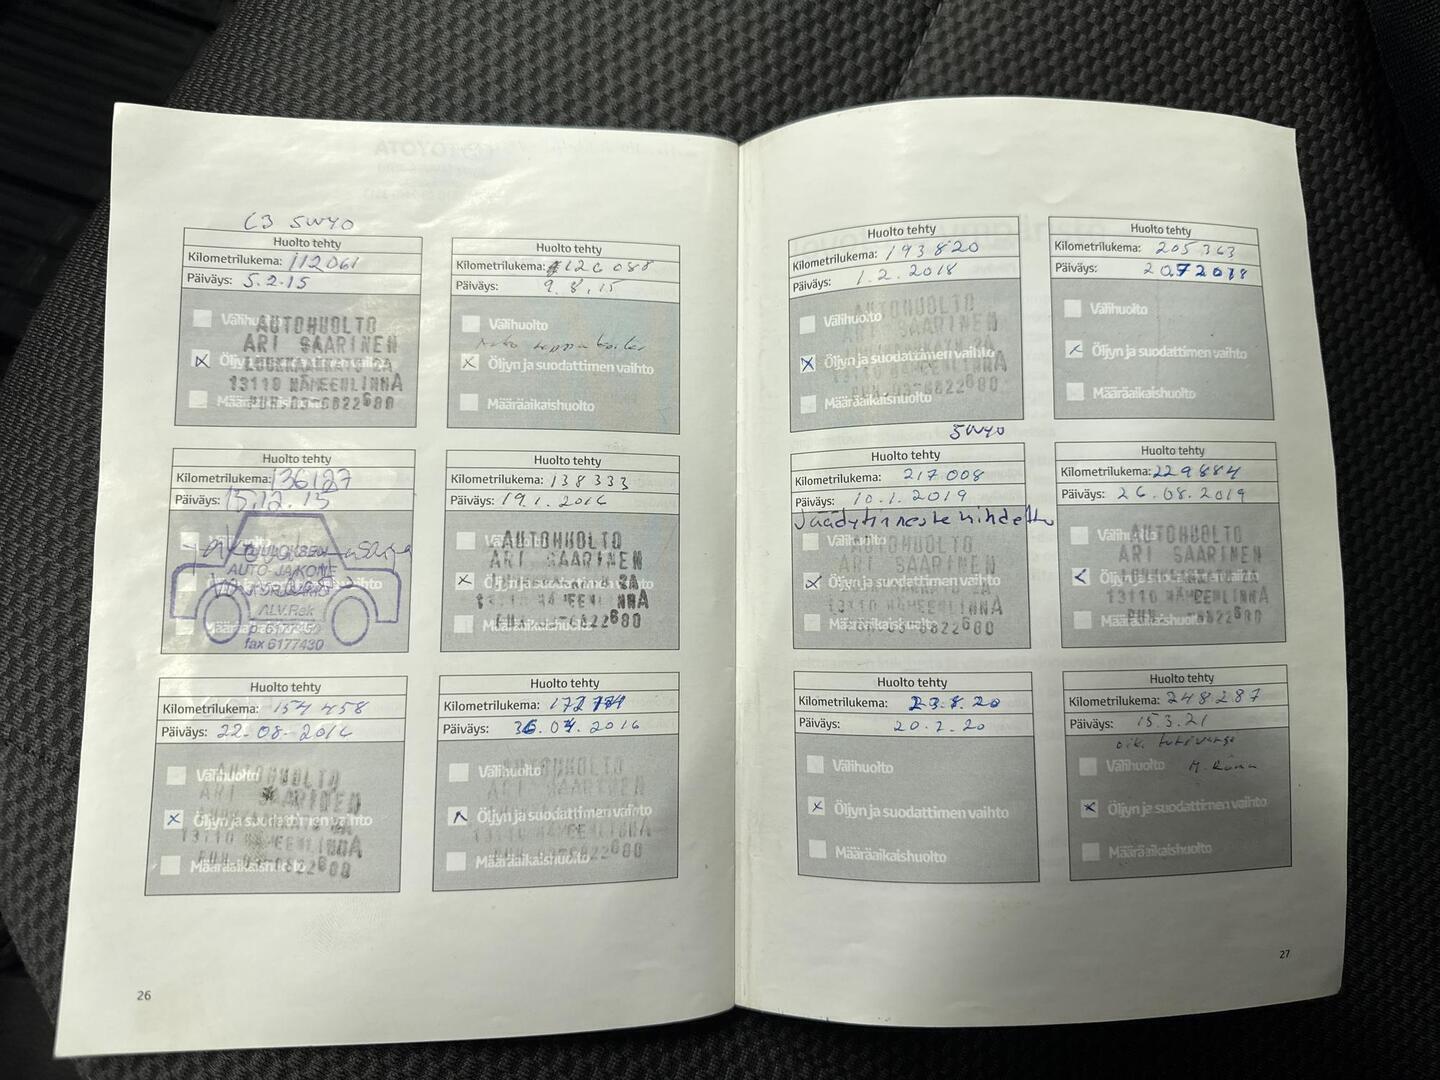 C3 5W40
Huolto tehty
Kilometrilukema: 112061
Päiväys: 5.2.15
Välihuolto
Öljyn ja suodattimen vaihto
Määräaikaishuolto
AUTOHUOLTO
ARI SAARINEN
13110 HÄMEENLINNA
Huolto tehty
Kilometrilukema: 126088
Päiväys: 9.8.15
Välihuolto
Öljyn ja suodattimen vaihto
Määräaikaishuolto
Huolto tehty
Kilometrilukema: 136187
Päiväys: 15.12.15
AUTO-JA KONE
ALV.Rek
fax 6177430
Huolto tehty
Kilometrilukema: 138333
Päiväys: 19.1.2016
Välihuolto
Öljyn ja suodattimen vaihto
Määräaikaishuolto
AUTOHUOLTO
ARI SAARINEN
13110 HÄMEENLINNA
Huolto tehty
Kilometrilukema: 154458
Päiväys: 22.08.2016
Välihuolto
Öljyn ja suodattimen vaihto
Määräaikaishuolto
AUTOHUOLTO
ARI SAARINEN
13110 HÄMEENLINNA
Huolto tehty
Kilometrilukema:
Päiväys:
Välihuolto
Öljyn ja suodattimen vaihto
Määräaikaishuolto
AUTOHUOLTO
ARI SAARINEN
13110 HÄMEENLINNA
26
Huolto tehty
Kilometrilukema: 193820
Päiväys: 1.2.2018
Välihuolto
Öljyn ja suodattimen vaihto
Määräaikaishuolto
AUTOHUOLTO
ARI SAARINEN
13110 HÄMEENLINNA
Huolto tehty
Kilometrilukema: 205363
Päiväys: 20.7.2018
Välihuolto
Öljyn ja suodattimen vaihto
Määräaikaishuolto
5W40
Huolto tehty
Kilometrilukema: 217008
Päiväys: 10.1.2019
Välihuolto
Öljyn ja suodattimen vaihto
Määräaikaishuolto
AUTOHUOLTO
ARI SAARINEN
13110 HÄMEENLINNA
Huolto tehty
Kilometrilukema: 229884
Päiväys: 26.08.2019
Välihuolto
Öljyn ja suodattimen vaihto
Määräaikaishuolto
AUTOHUOLTO
ARI SAARINEN
13110 HÄMEENLINNA
Huolto tehty
Kilometrilukema:
Päiväys: 20.2.20
Välihuolto
Öljyn ja suodattimen vaihto
Määräaikaishuolto
Huolto tehty
Kilometrilukema: 248287
Päiväys: 15.3.21
oik. tukivarsi
Välihuolto
Öljyn ja suodattimen vaihto
Määräaikaishuolto
27